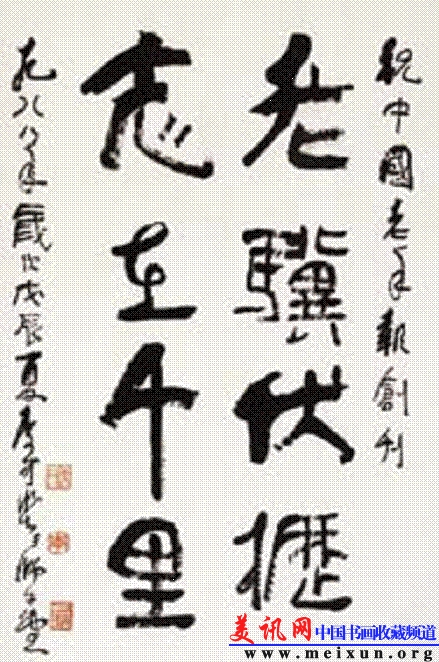 祝中國老年報創刊
老驥伏櫪
志在千里
一九八八年歲次戊辰夏李可染于師牛堂
美讯网 中国书画收藏频道
www.meixun.org